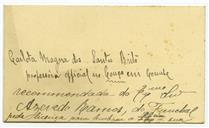 Carlota Magna dos Santos Brito
professora official no Couço em Coruche
recommendada do Exmo Snr
Azevedo Ramos, do Funchal
pede licença para lembrar a